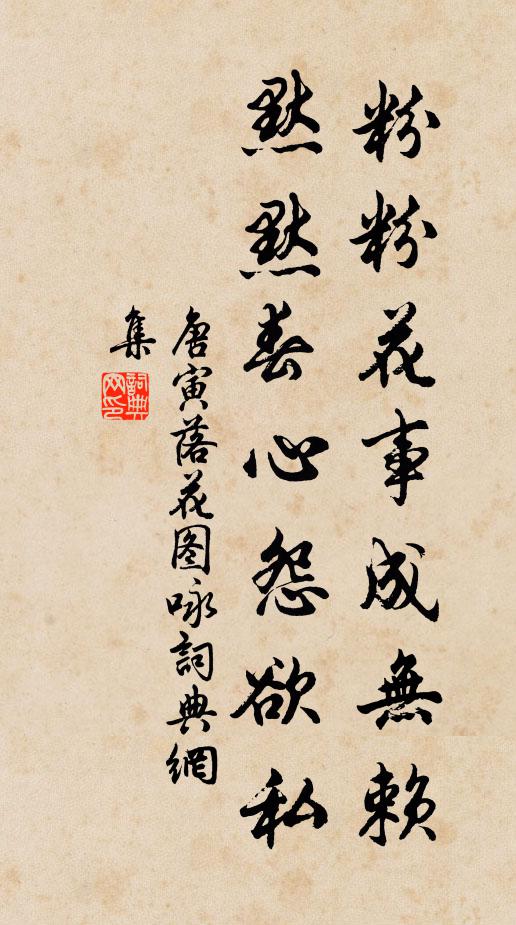 粉粉花事成無賴
默默春心怨欲私
唐寅落花图咏詞典網
集
詞典
网印